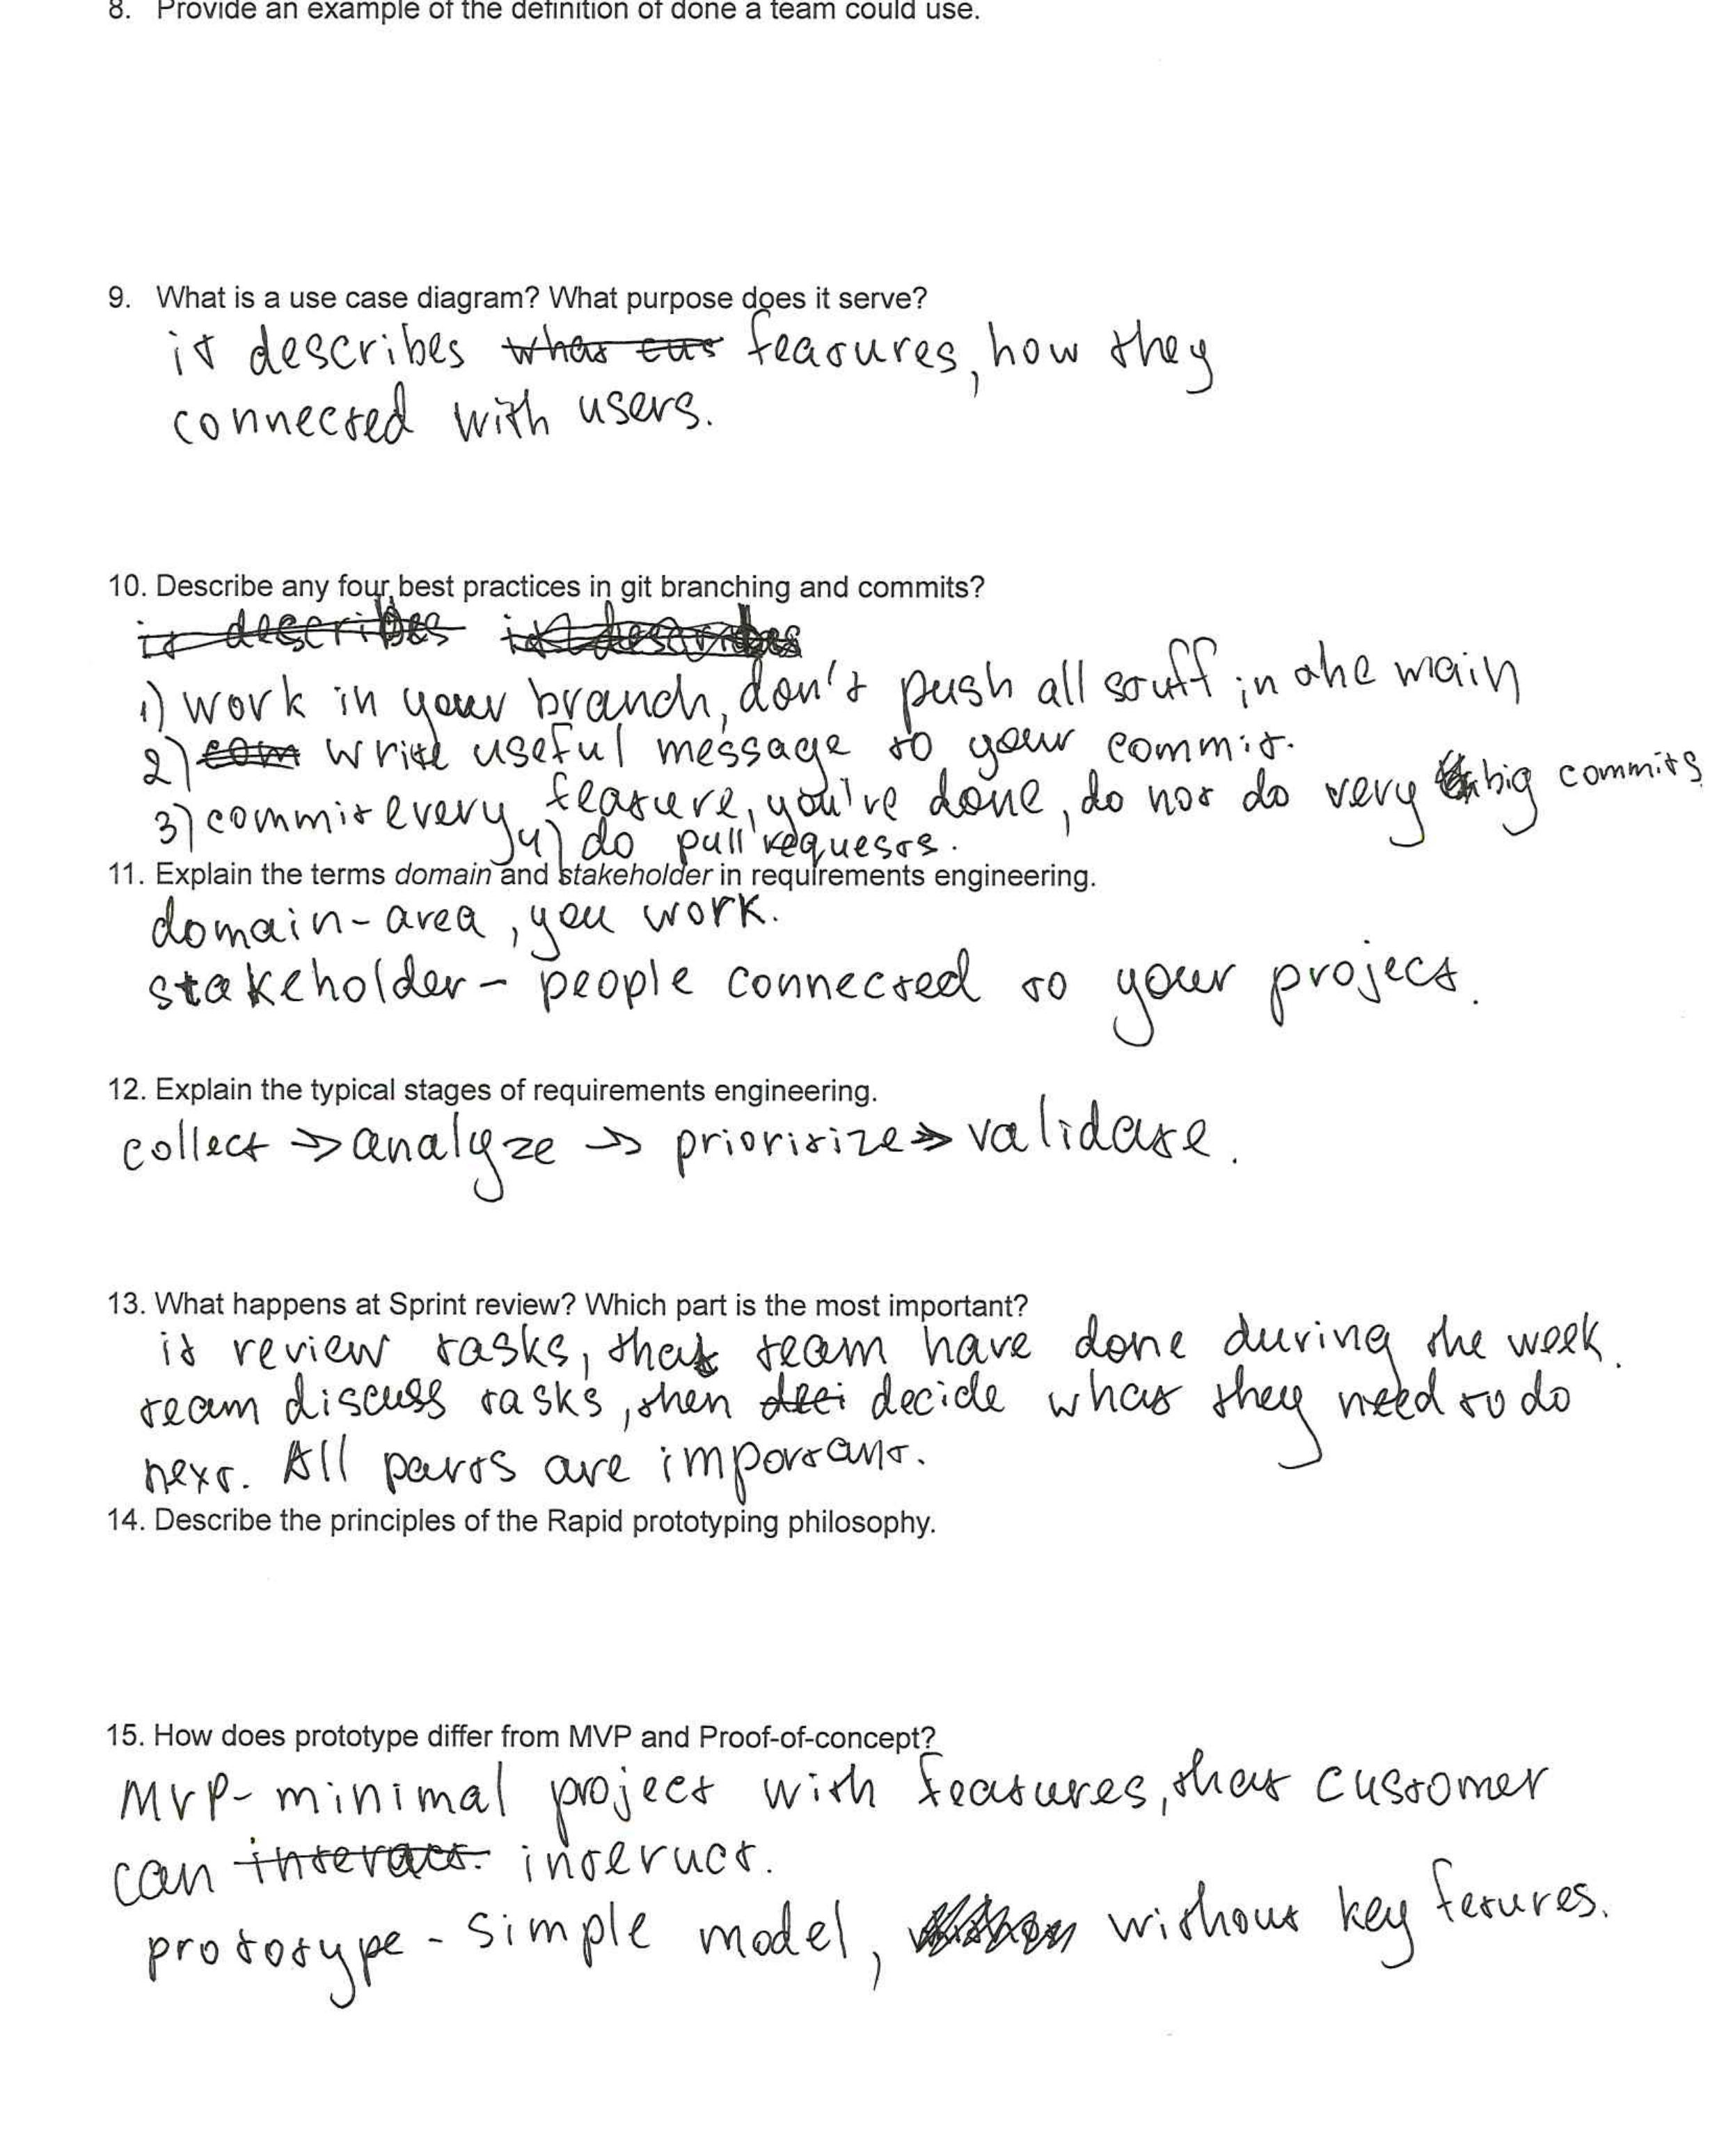 8. Provide an example of the definition of done a team could use.
9. What is a use case diagram? What purpose does it serve?
it describes features, how they
connected with users.
10. Describe any four best practices in git branching and commits?
it describes
1) work in your branch, don't push all stuff in the main
2) write useful message to your commit.
3) commit every feature, you've done, do not do very big commits
4) do pull requests.
11. Explain the terms domain and stakeholder in requirements engineering.
domain - area, you work.
stakeholder - people connected to your project.
12. Explain the typical stages of requirements engineering.
collect => analyze => prioritize => validate.
13. What happens at Sprint review? Which part is the most important?
it review tasks, that team have done during the week.
team discuss tasks, then decide what they need to do
next. All parts are important.
14. Describe the principles of the Rapid prototyping philosophy.
15. How does prototype differ from MVP and Proof-of-concept?
MVP - minimal project with features, that customer
can interact. interuct.
prototype - simple model, without key fetures.